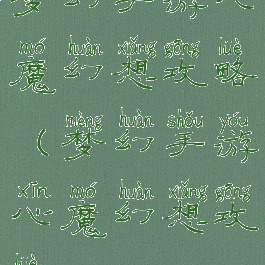 mó huàn xiǎng gōng lüè
魔幻想攻略
mèng huàn shǒu yóu
(梦幻手游
xīn mó huàn xiǎng gōng
心魔幻想攻
lüè